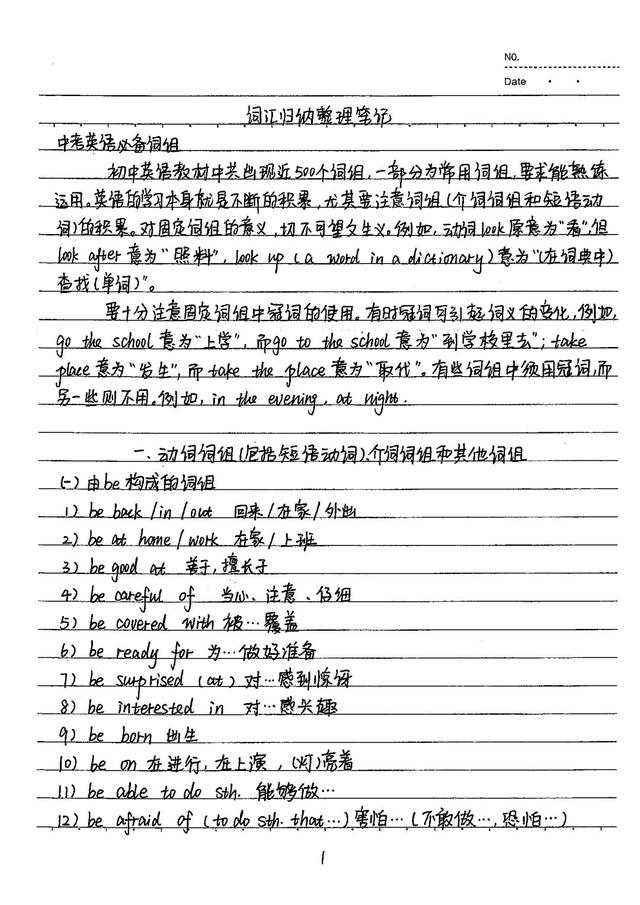 NO.
Date
词汇归纳整理笔记
中考英语必备词组
初中英语教材中共出现近500个词组,一部分为常用词组,要求能熟练
运用。英语的学习本身就是不断的积累,尤其要注意词组(介词词组和短语动
词)的积累。对固定词组的意义,切不可望文生义。例如,动词look原意为“看”,但
look after意为“照料”,look up (a word in a dictionary)意为“(在词典中)
查找(单词)”。
要十分注意固定词组中冠词的使用。有时冠词可引起词义的变化,例如,
go the school意为“上学”,而go to the school意为“到学校里去”;take
place意为“发生”,而take the place意为“取代”。有些词组中须用冠词,而
另一些则不用。例如,in the evening, at night.
一、动词词组(包括短语动词)、介词词组和其他词组
(一)由be构成的词组
1) be back/in/out 回来/在家/外出
2) be at home/work 在家/上班
3) be good at 善于,擅长于
4) be careful of 当心、注意、仔细
5) be covered with 被…覆盖
6) be ready for 为…做好准备
7) be surprised (at) 对…感到惊讶
8) be interested in 对…感兴趣
9) be born 出生
10) be on 在进行,在上演,(灯)亮着
11) be able to do sth. 能够做…
12) be afraid of (to do sth. that…) 害怕…(不敢做…,恐怕…)
1